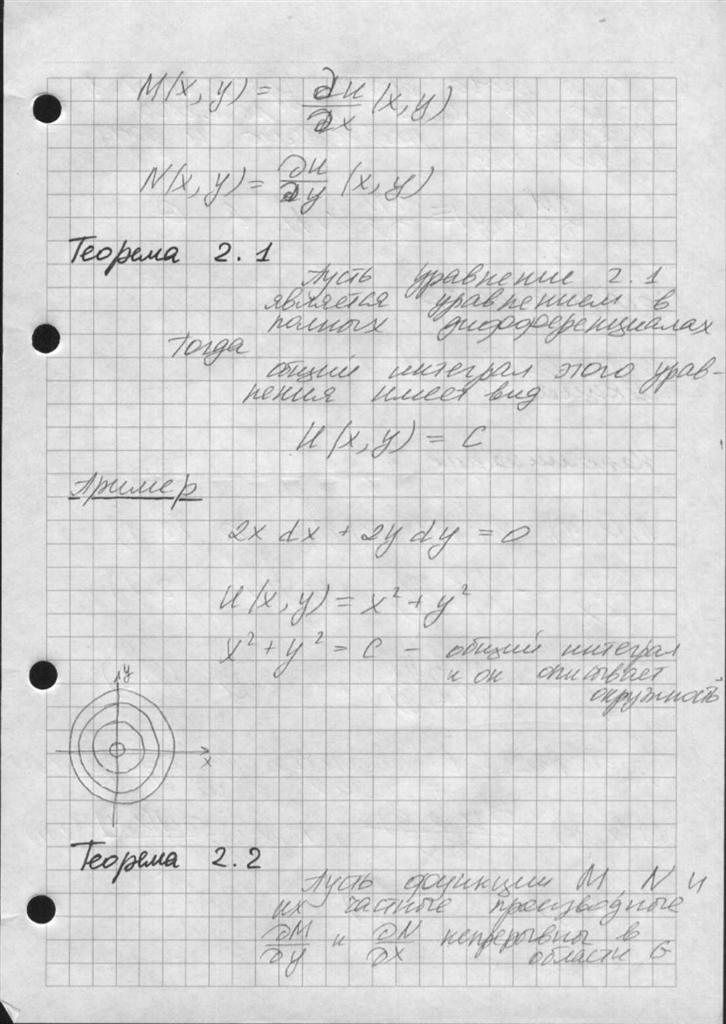 M(x, y) = ∂u/∂x (x, y)
N(x, y) = ∂u/∂y (x, y)
Теорема 2.1
Пусть уравнение 2.1
является уравнением в
полных дифференциалах
Тогда
общий интеграл этого урав-
нения имеет вид
U(x, y) = C
Пример
2x dx + 2y dy = 0
U(x, y) = x² + y²
x² + y² = C - общий интеграл
и он описывает
окружность
y
x
Теорема 2.2
Пусть функции M, N и
их частные производные
∂M/∂y и ∂N/∂x непрерывны в
области G